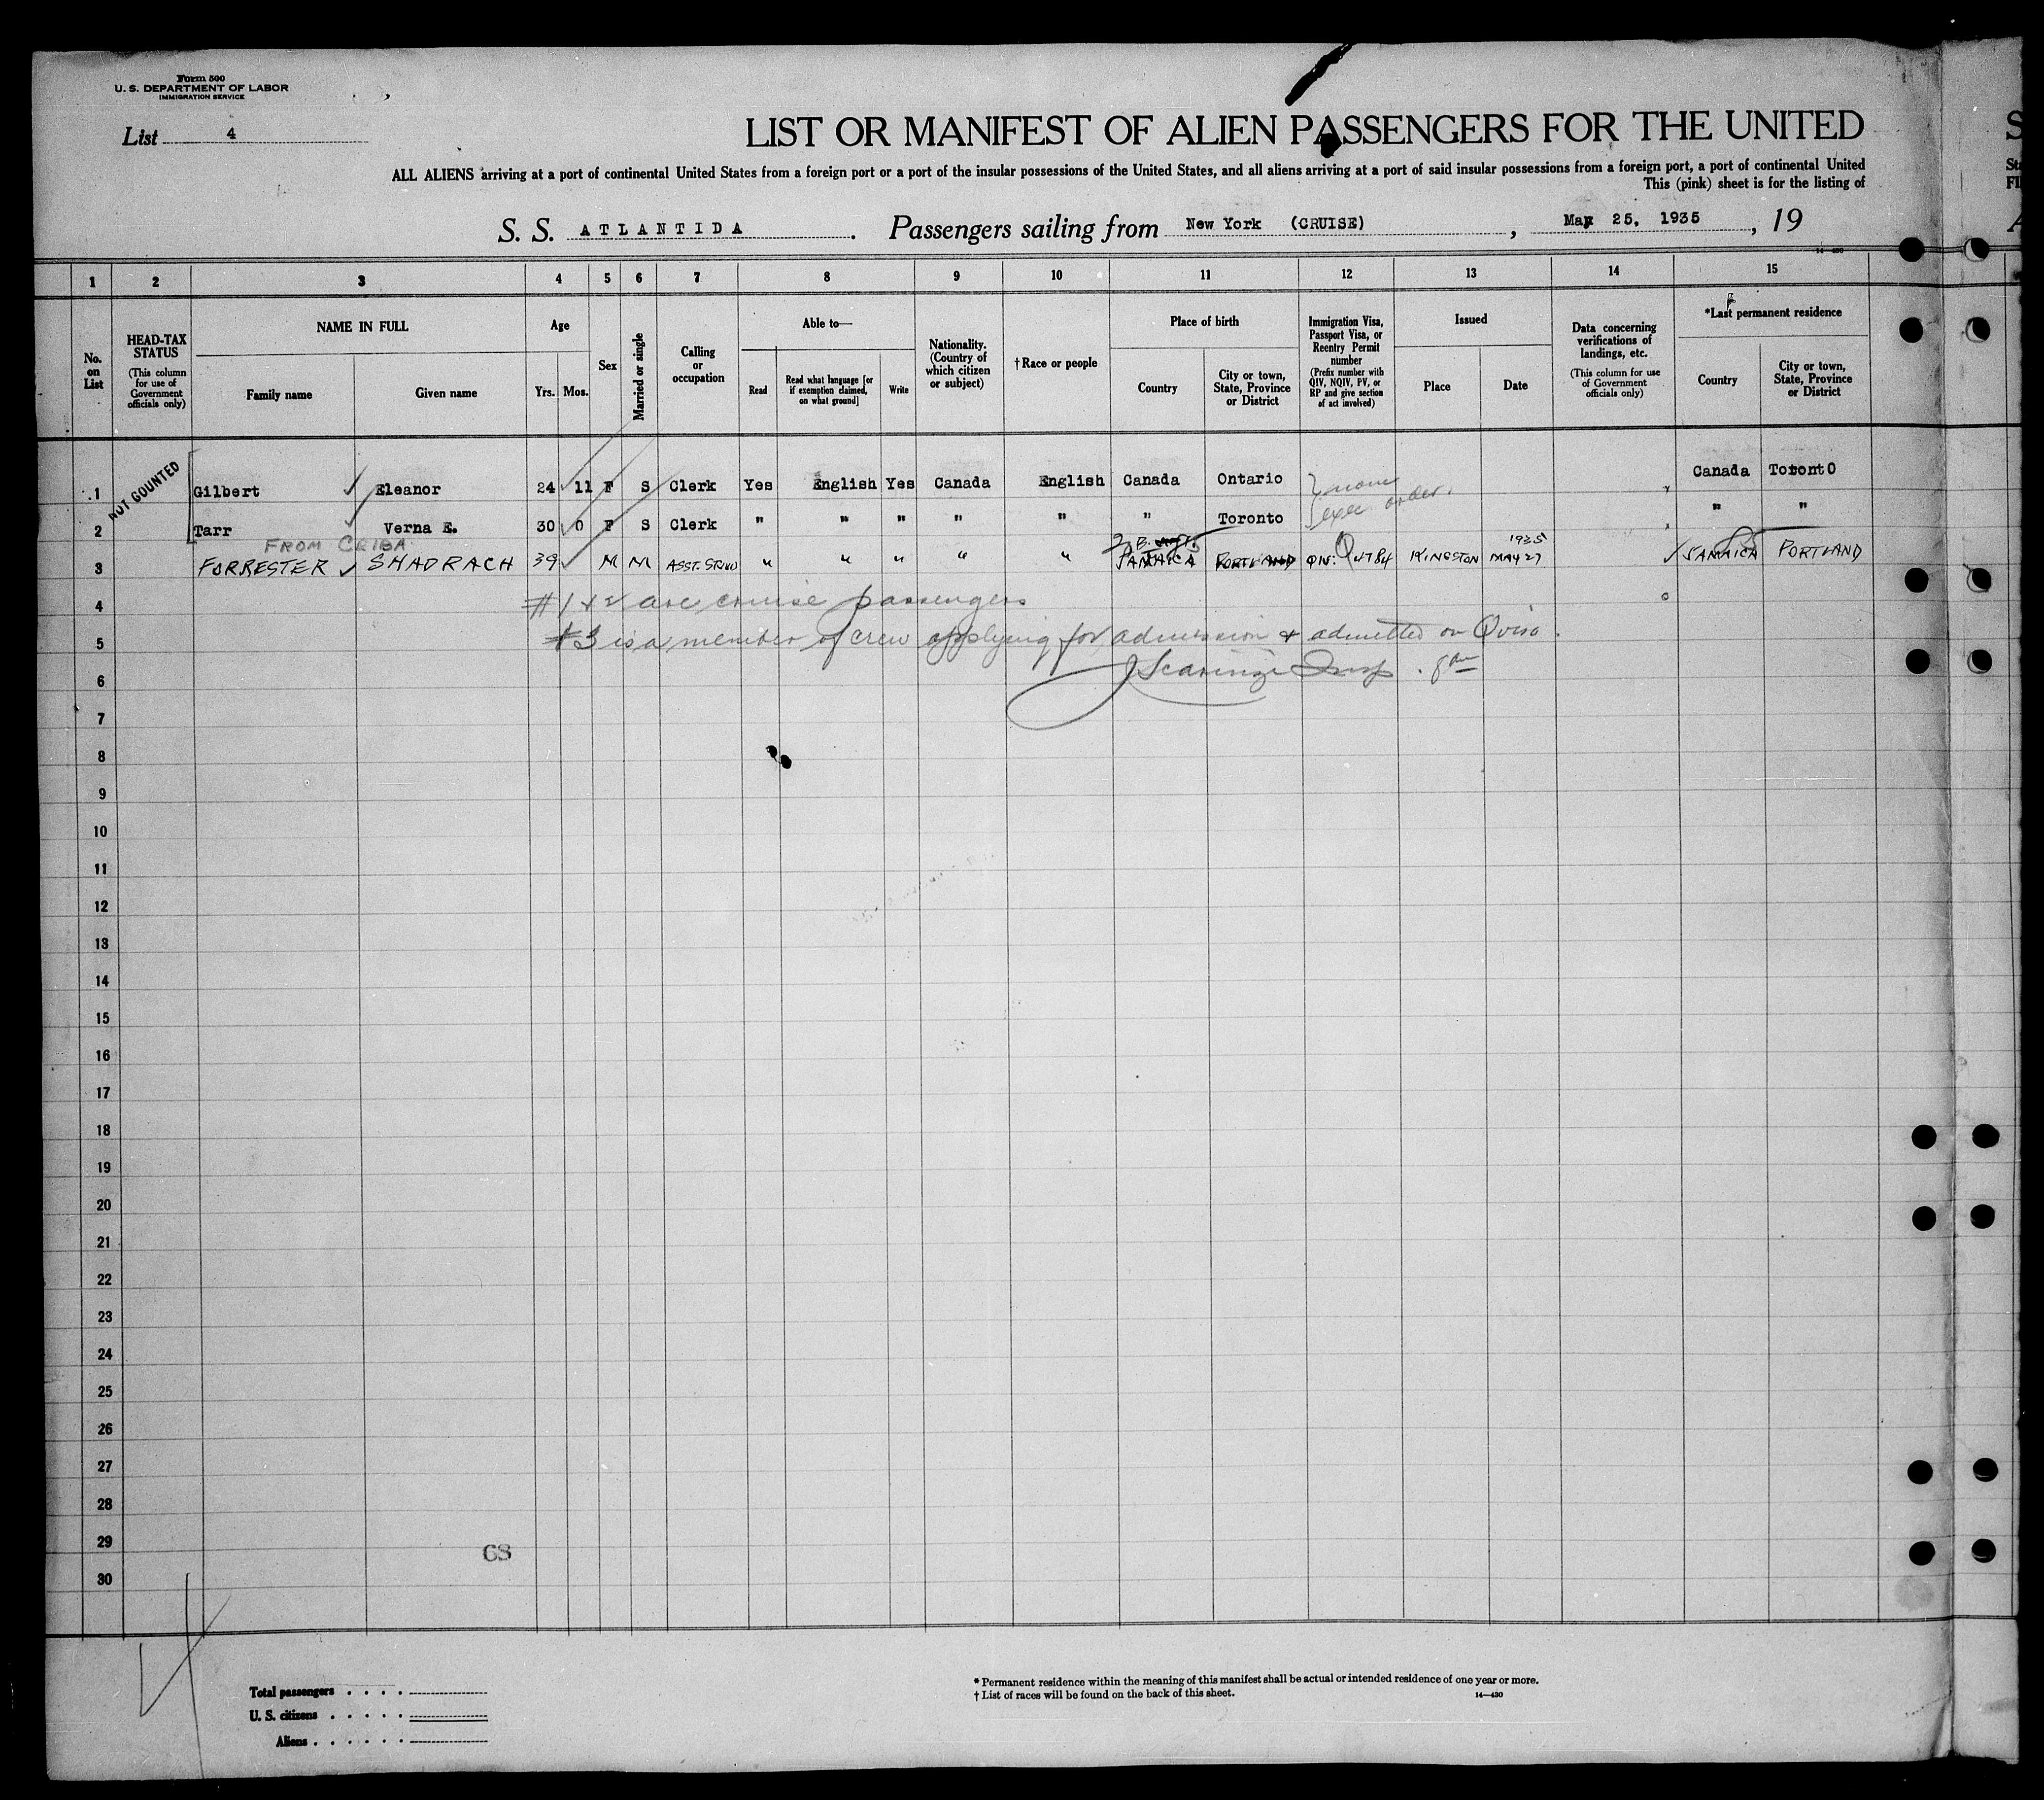 Form 500
U. S. DEPARTMENT OF LABOR
IMMIGRATION SERVICE
List 4
LIST OR MANIFEST OF ALIEN PASSENGERS FOR THE UNITED
ALL ALIENS arriving at a port of continental United States from a foreign port or a port of the insular possessions of the United States, and all aliens arriving at a port of said insular possessions from a foreign port, a port of continental United
This (pink) sheet is for the listing of
S. S. ATLANTIDA. Passengers sailing from New York (CRUISE), May 25, 1935, 19
14-430
1 2 3 4 5 6 7 8 9 10 11 12 13 14 15
No. on List
HEAD-TAX STATUS
(This column for use of Government officials only)
NAME IN FULL
Family name
Given name
Age
Yrs. Mos.
Sex
Married or single
Calling or occupation
Able to—
Read
Read what language [or if exemption claimed, on what ground]
Write
Nationality. (Country of which citizen or subject)
† Race or people
Place of birth
Country
City or town, State, Province or District
Immigration Visa, Passport Visa, or Reentry Permit number
(Prefix number with QIV, NQIV, PV, or RP and give section of act involved)
Issued
Place
Date
Data concerning verifications of landings, etc.
(This column for use of Government officials only)
*Last permanent residence
Country
City or town, State, Province or District
NOT COUNTED
1 Gilbert Eleanor 24 11 F S Clerk Yes English Yes Canada English Canada Ontario none Canada Toronto
2 Tarr Verna E. 30 0 F S Clerk " " " " " " Toronto exec order. " "
FROM CEIBA
3 FORRESTER SHADRACH 39 M M ASST. STWD " " " " " JAMAICA PORTLAND QIV. 4784 KINGSTON 1935 MAY 27 JAMAICA PORTLAND
4 #1 & 2 are cruise passengers
5 #3 is a member of crew applying for admission & admitted on Q visa.
6 J Scaringi Insp.
7
8
9
10
11
12
13
14
15
16
17
18
19
20
21
22
23
24
25
26
27
28
29
30
68
Total passengers . . . .
U. S. citizens . . . . .
Aliens . . . . . .
* Permanent residence within the meaning of this manifest shall be actual or intended residence of one year or more.
† List of races will be found on the back of this sheet.
14—430